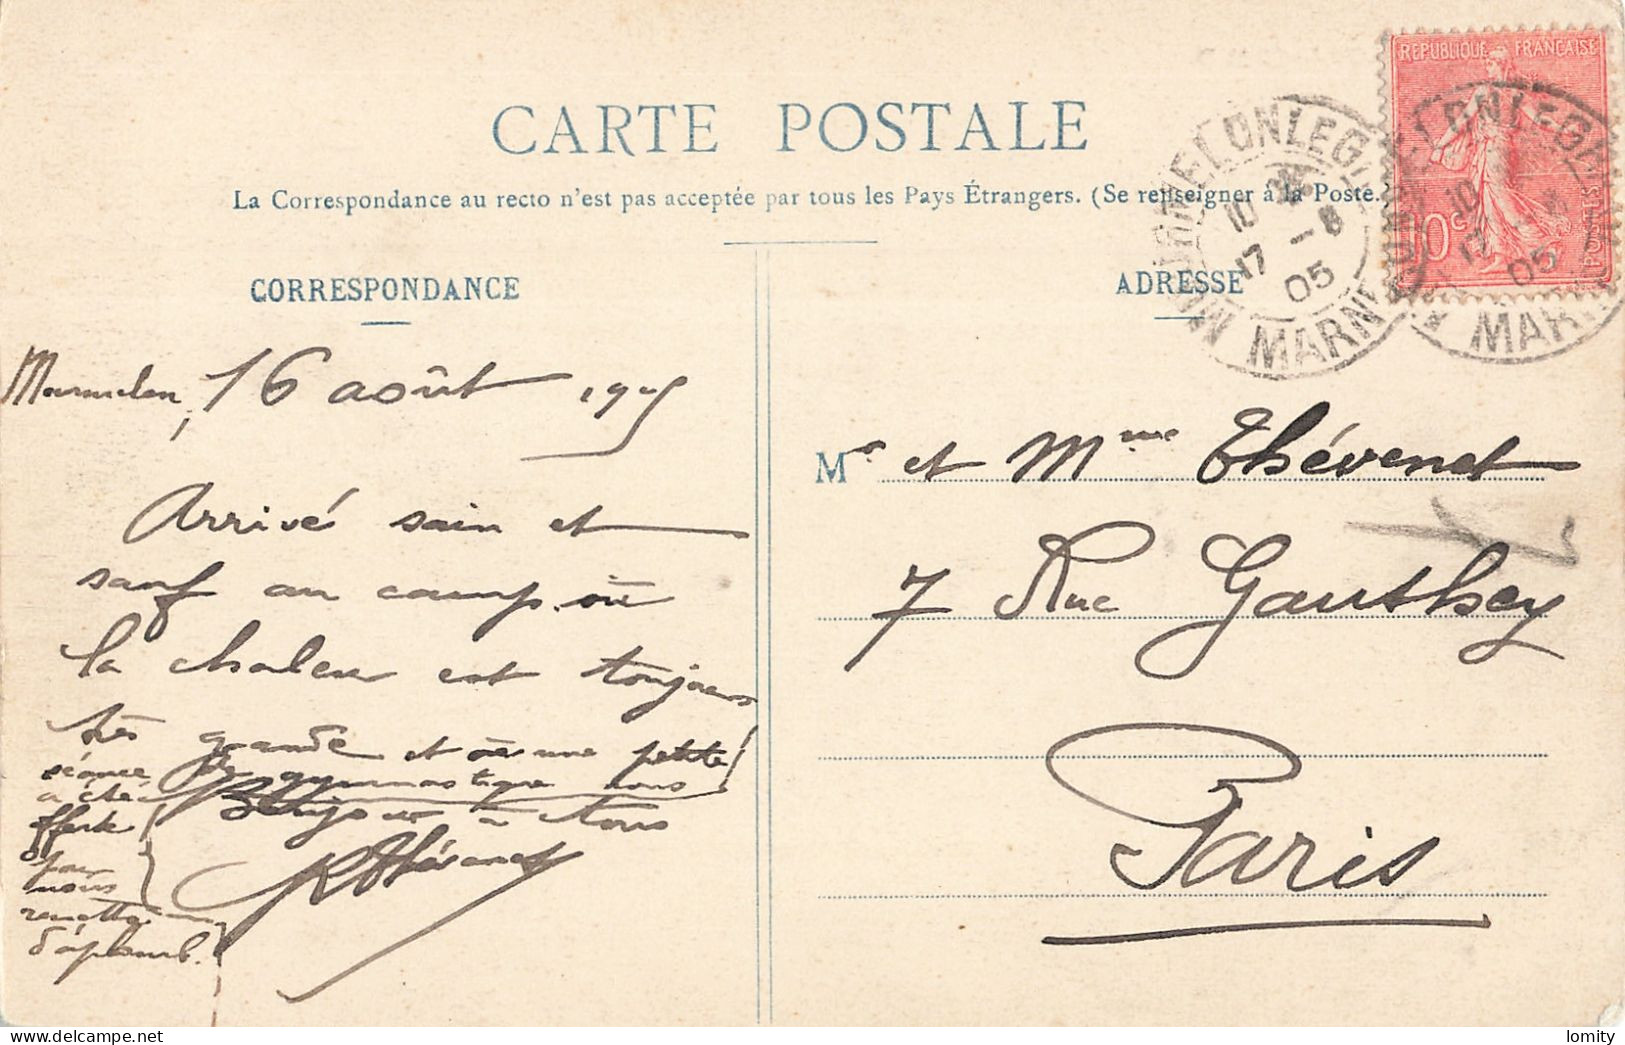 CARTE POSTALE
La Correspondance au recto n'est pas acceptée par tous les Pays Étrangers. (Se renseigner à la Poste.)
CORRESPONDANCE
ADRESSE
REPUBLIQUE FRANÇAISE
10c
POSTES
MOURMELON LE GRAND
10
17 -8
05
MARNE
MOURMELON LE GRAND
10
17
05
MARNE
Mourmelon, 16 août 1905
Arrivé sain et
sauf au camp où
la chaleur est toujours
très grande et où une petite
séance de gymnastique nous
a été
offerte
par
nous
remettre
d'aplomb.
Bonjour à tous
R Thévenet
Mr et Mme Thévenet
7 Rue Gauthey
Paris
lomity